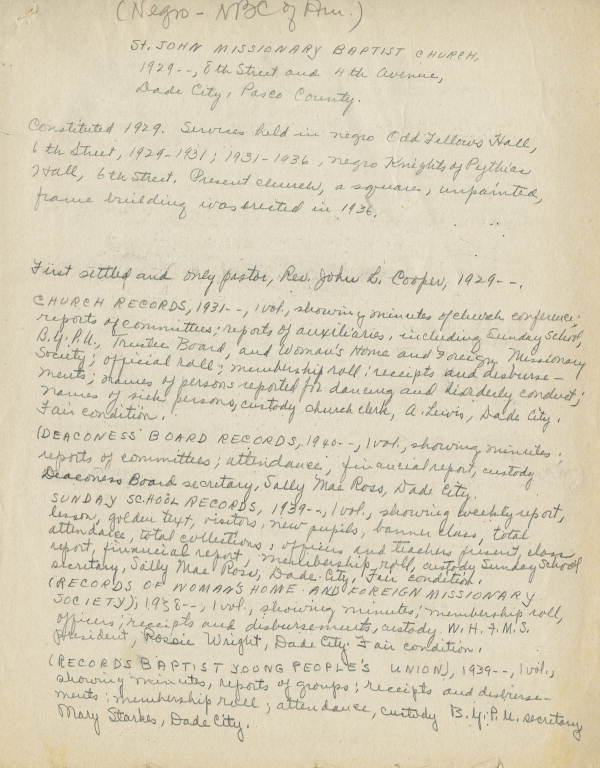 (Negro - NBC of Am.)
St. JOHN MISSIONARY BAPTIST CHURCH,
1929--, 8th Street and 4th Avenue,
Dade City, Pasco County.
Constituted 1929. Services held in negro Odd Fellows Hall,
6th Street, 1929-1931; 1931-1936, negro Knights of Pythias
Hall, 6th Street. Present church, a square, unpainted,
frame building was erected in 1936.
First settled and only pastor, Rev. John L. Cooper, 1929--.
CHURCH RECORDS, 1931--, 1 vol., showing minutes of church conference;
reports of committees; reports of auxiliaries, including Sunday School,
B.Y.P.U., Trustee Board, and Woman's Home and Foreign Missionary
Society; official roll; membership roll; receipts and disburse-
ments; names of persons reported for dancing and disorderly conduct;
names of sick persons, custody church clerk, A. Lewis, Dade City.
Fair condition.
(DEACONESS' BOARD RECORDS, 1940--, 1 vol., showing minutes;
reports of committees; attendance; financial report, custody
Deaconess Board secretary, Sally Mae Ross, Dade City.
SUNDAY SCHOOL RECORDS, 1939--, 1 vol., showing weekly report,
lesson, golden text, visitors, new pupils, banner class, total
attendance, total collections; officers and teachers present, class
report, financial report, membership roll, custody Sunday School
secretary, Sally Mae Ross, Dade City, Fair condition.
(RECORDS OF WOMAN'S HOME AND FOREIGN MISSIONARY
SOCIETY), 1938--, 1 vol., showing minutes; membership roll,
officers; receipts and disbursements, custody W.H.F.M.S.
president, Rossie Wright, Dade City. Fair condition.
(RECORDS BAPTIST YOUNG PEOPLE'S UNION), 1939--, 1 vol.,
showing minutes, reports of groups; receipts and disburse-
ments; membership roll; attendance, custody B.Y.P.U. secretary
Mary Starkes, Dade City.